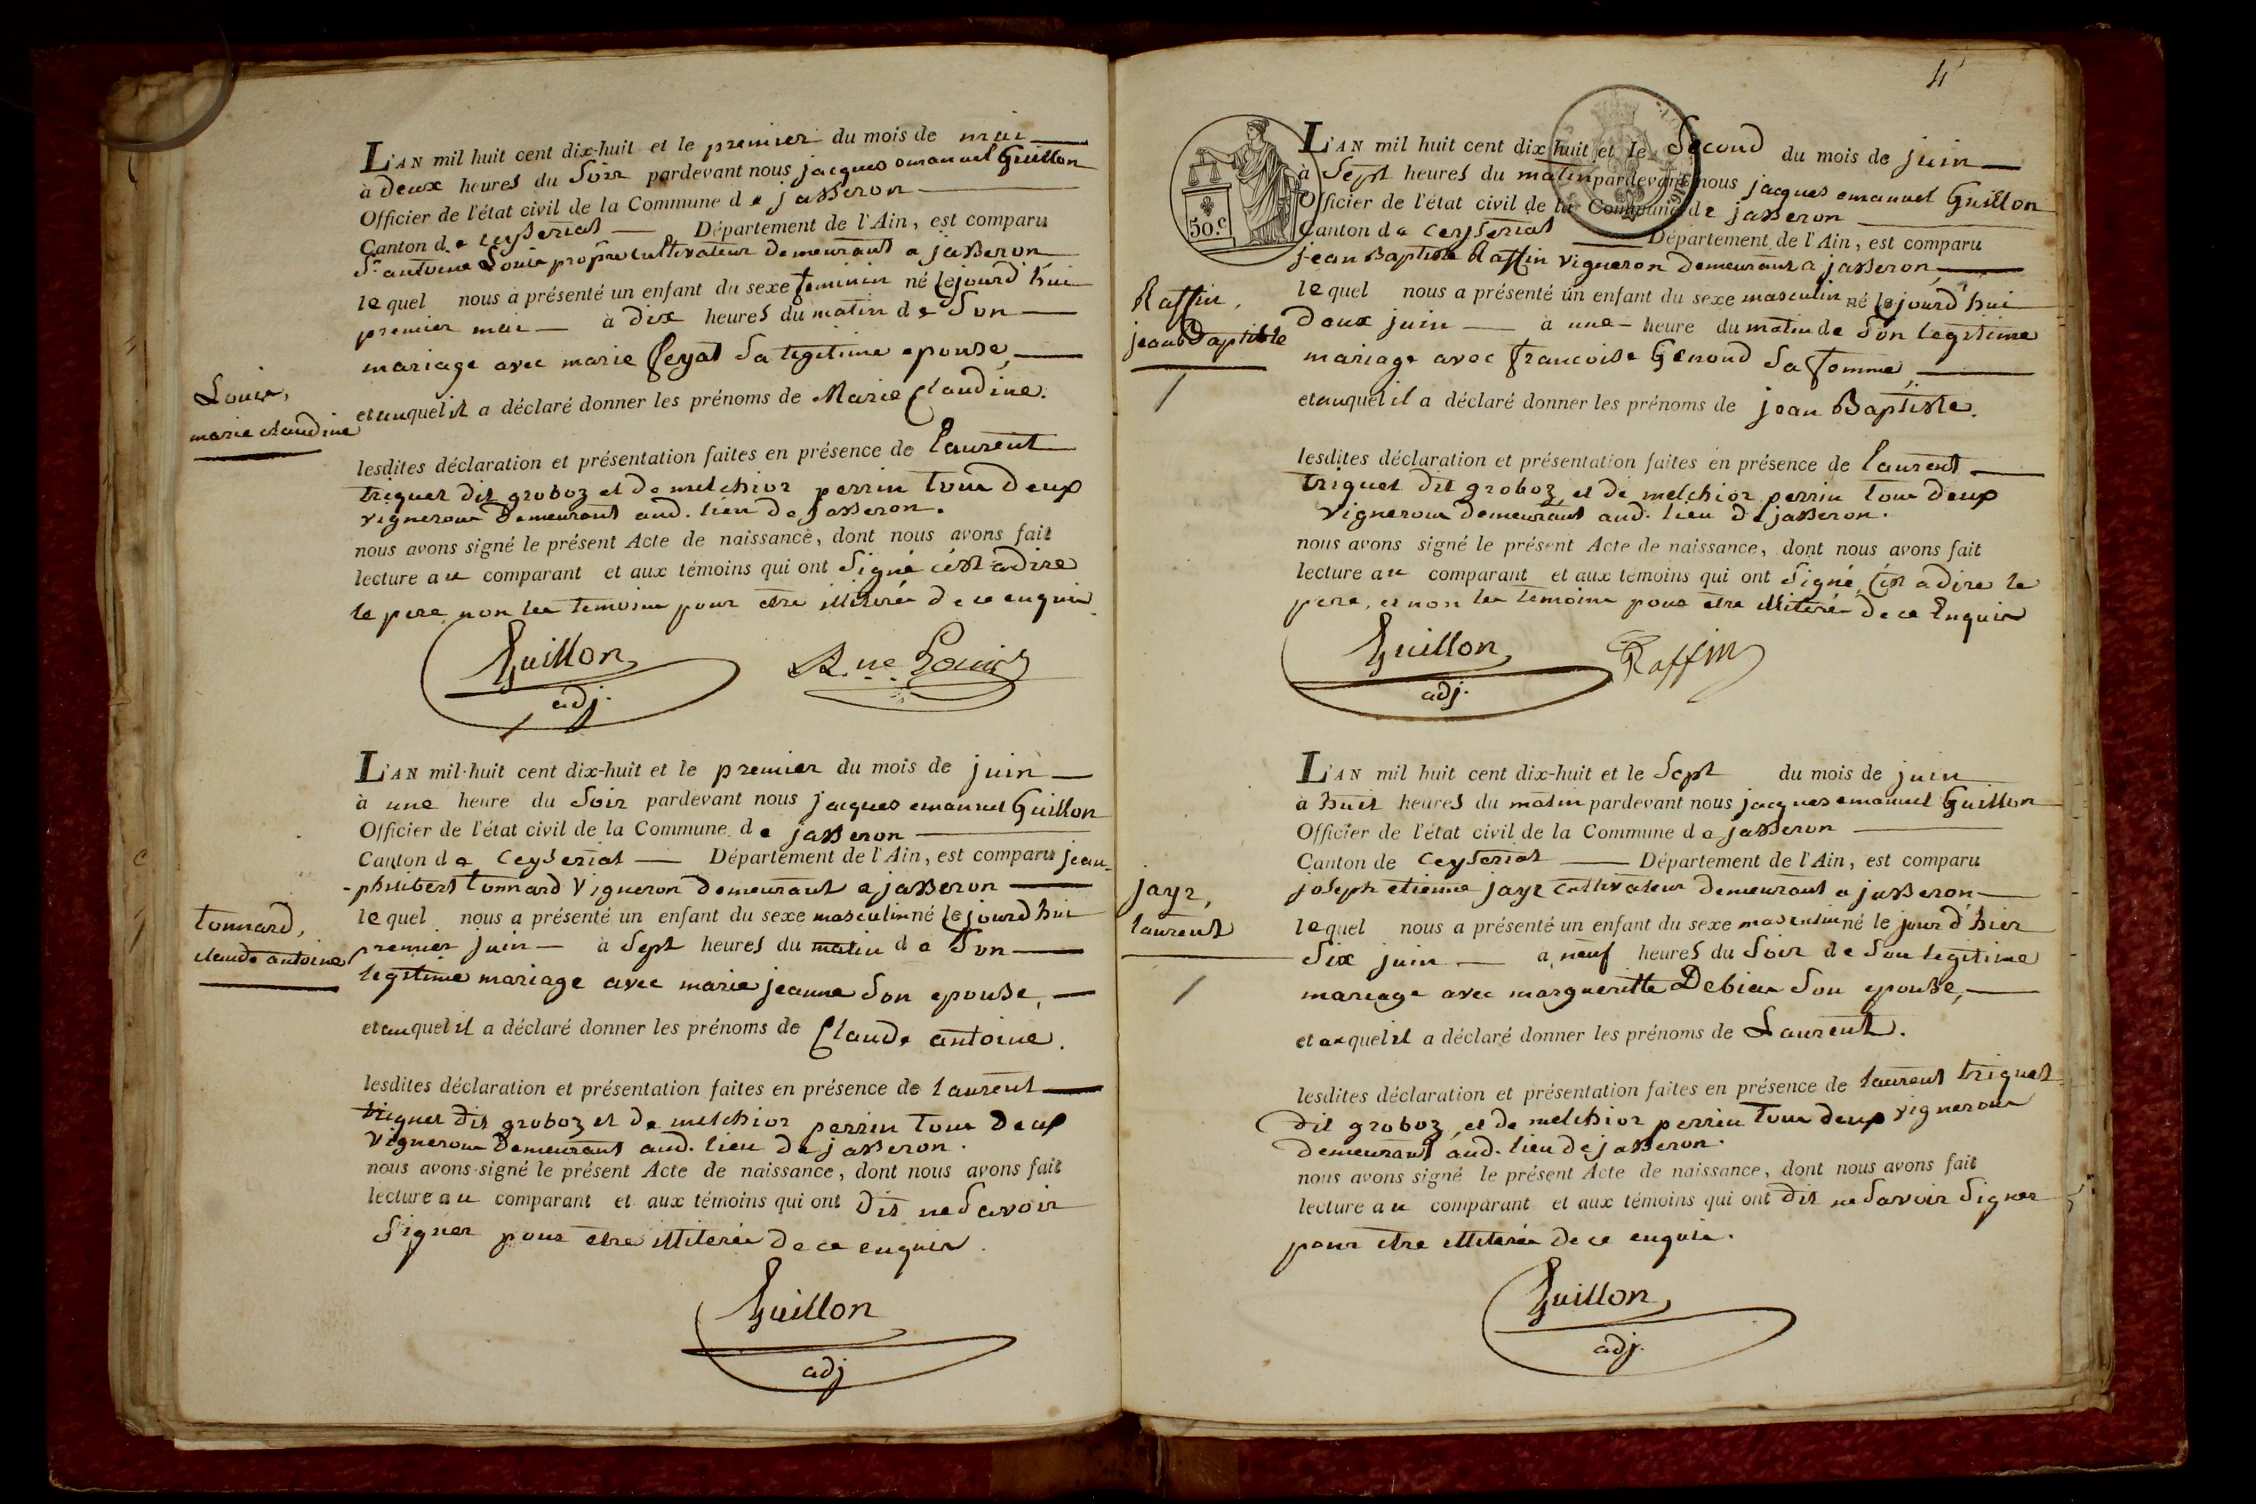 L'AN mil huit cent dix-huit et le premier du mois de mai
à deux heures du Soir pardevant nous jacques emanuel Guillon
Officier de l'état civil de la Commune de jasseron
Canton de ceyseriat Département de l'Ain, est comparu
Sr antoine Louis propre cultivateur demeurant a jasseron
lequel nous a présenté un enfant du sexe feminin né cejourd'hui
premier mai à dix heures du matin de Son
mariage avec marie Peyat Sa legitime epouse,
Louis,
marie claudine
et auquel il a déclaré donner les prénoms de Marie Claudine.
lesdites déclaration et présentation faites en présence de Laurent
triquet dit groboz et de melchior perrin tous deux
vignerons demeurant aud. lieu de jasseron.
nous avons signé le présent Acte de naissance, dont nous avons fait
lecture au comparant et aux témoins qui ont Signé c'est adire
le pere, non les temoins pour etre illiterés de ce enquis
Guillon
adj.
A.ne Louis
L'AN mil huit cent dix-huit et le premier du mois de juin
à une heure du Soir pardevant nous jacques emanuel Guillon
Officier de l'état civil de la Commune de jasseron
Canton de Ceyseriat Département de l'Ain, est comparu jean
-philibert tonnard vigneron demeurant a jasseron
lequel nous a présenté un enfant du sexe masculin né cejourd'hui
tonnard,
claude antoine
premier juin à Sept heures du matin de Son
legitime mariage avec marie jeanne Son epouse,
et auquel il a déclaré donner les prénoms de Claude antoine.
lesdites déclaration et présentation faites en présence de Laurent
triquet dit groboz et de melchior perrin tous deux
vignerons demeurant aud. lieu de jasseron.
nous avons signé le présent Acte de naissance, dont nous avons fait
lecture au comparant et aux témoins qui ont dit ne Savoir
Signer pour etre illiterés de ce enquis.
Guillon
adj
4
50.c
L'AN mil huit cent dix-huit et le Second du mois de juin
à Sept heures du matin pardevant nous jacques emanuel Guillon
Officier de l'état civil de la Commune de jasseron
Canton de Ceyseriat Département de l'Ain, est comparu
jean Baptiste Raffin vigneron demeurant a jasseron
Raffin,
jean Baptiste
lequel nous a présenté un enfant du sexe masculin né cejourd'hui
deux juin à une heure du matin de Son legitime
mariage avec francoise Genoud Sa femme,
et auquel il a déclaré donner les prénoms de jean Baptiste.
lesdites déclaration et présentation faites en présence de Laurent
triquet dit groboz, et de melchior perrin tous deux
vignerons demeurant aud. lieu de jasseron.
nous avons signé le présent Acte de naissance, dont nous avons fait
lecture au comparant et aux témoins qui ont Signé, c'est adire le
pere, et non les temoins pour etre illiterés de ce Enquis
Guillon
adj.
Raffin
L'AN mil huit cent dix-huit et le Sept du mois de juin
à huit heures du matin pardevant nous jacques emanuel Guillon
Officier de l'état civil de la Commune de jasseron
Canton de Ceyseriat Département de l'Ain, est comparu
joseph etienne jayr cultivateur demeurant a jasseron
jayr,
laurent
lequel nous a présenté un enfant du sexe masculin né le jour d'hier
Six juin à neuf heures du Soir de Son legitime
mariage avec margueritte Debias Son epouse,
et auquel il a déclaré donner les prénoms de Laurent.
lesdites déclaration et présentation faites en présence de laurent triquet
dit groboz, et de melchior perrin tous deux vignerons
demeurant aud. lieu de jasseron.
nous avons signé le présent Acte de naissance, dont nous avons fait
lecture au comparant et aux témoins qui ont dit ne Savoir Signer
pour etre illiterés de ce enquis.
Guillon
adj.